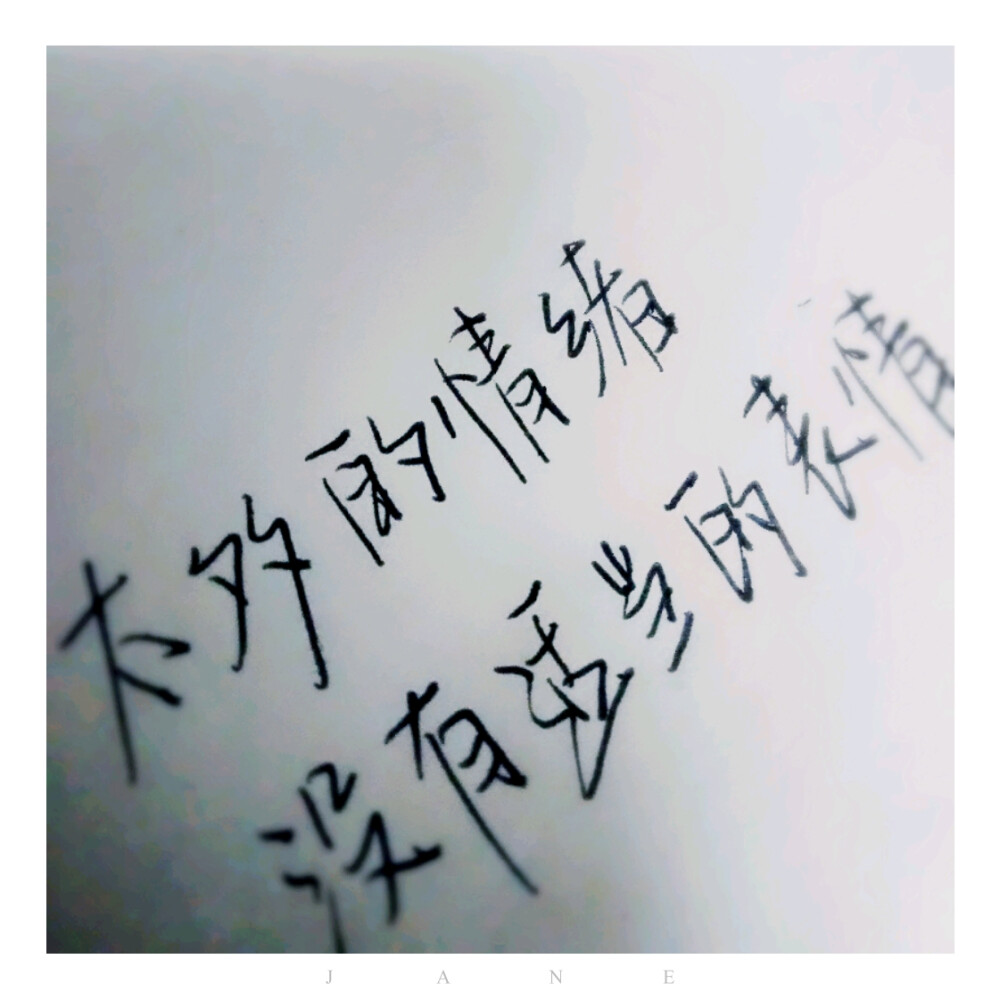 太多的情绪
没有适当的表情
JANE